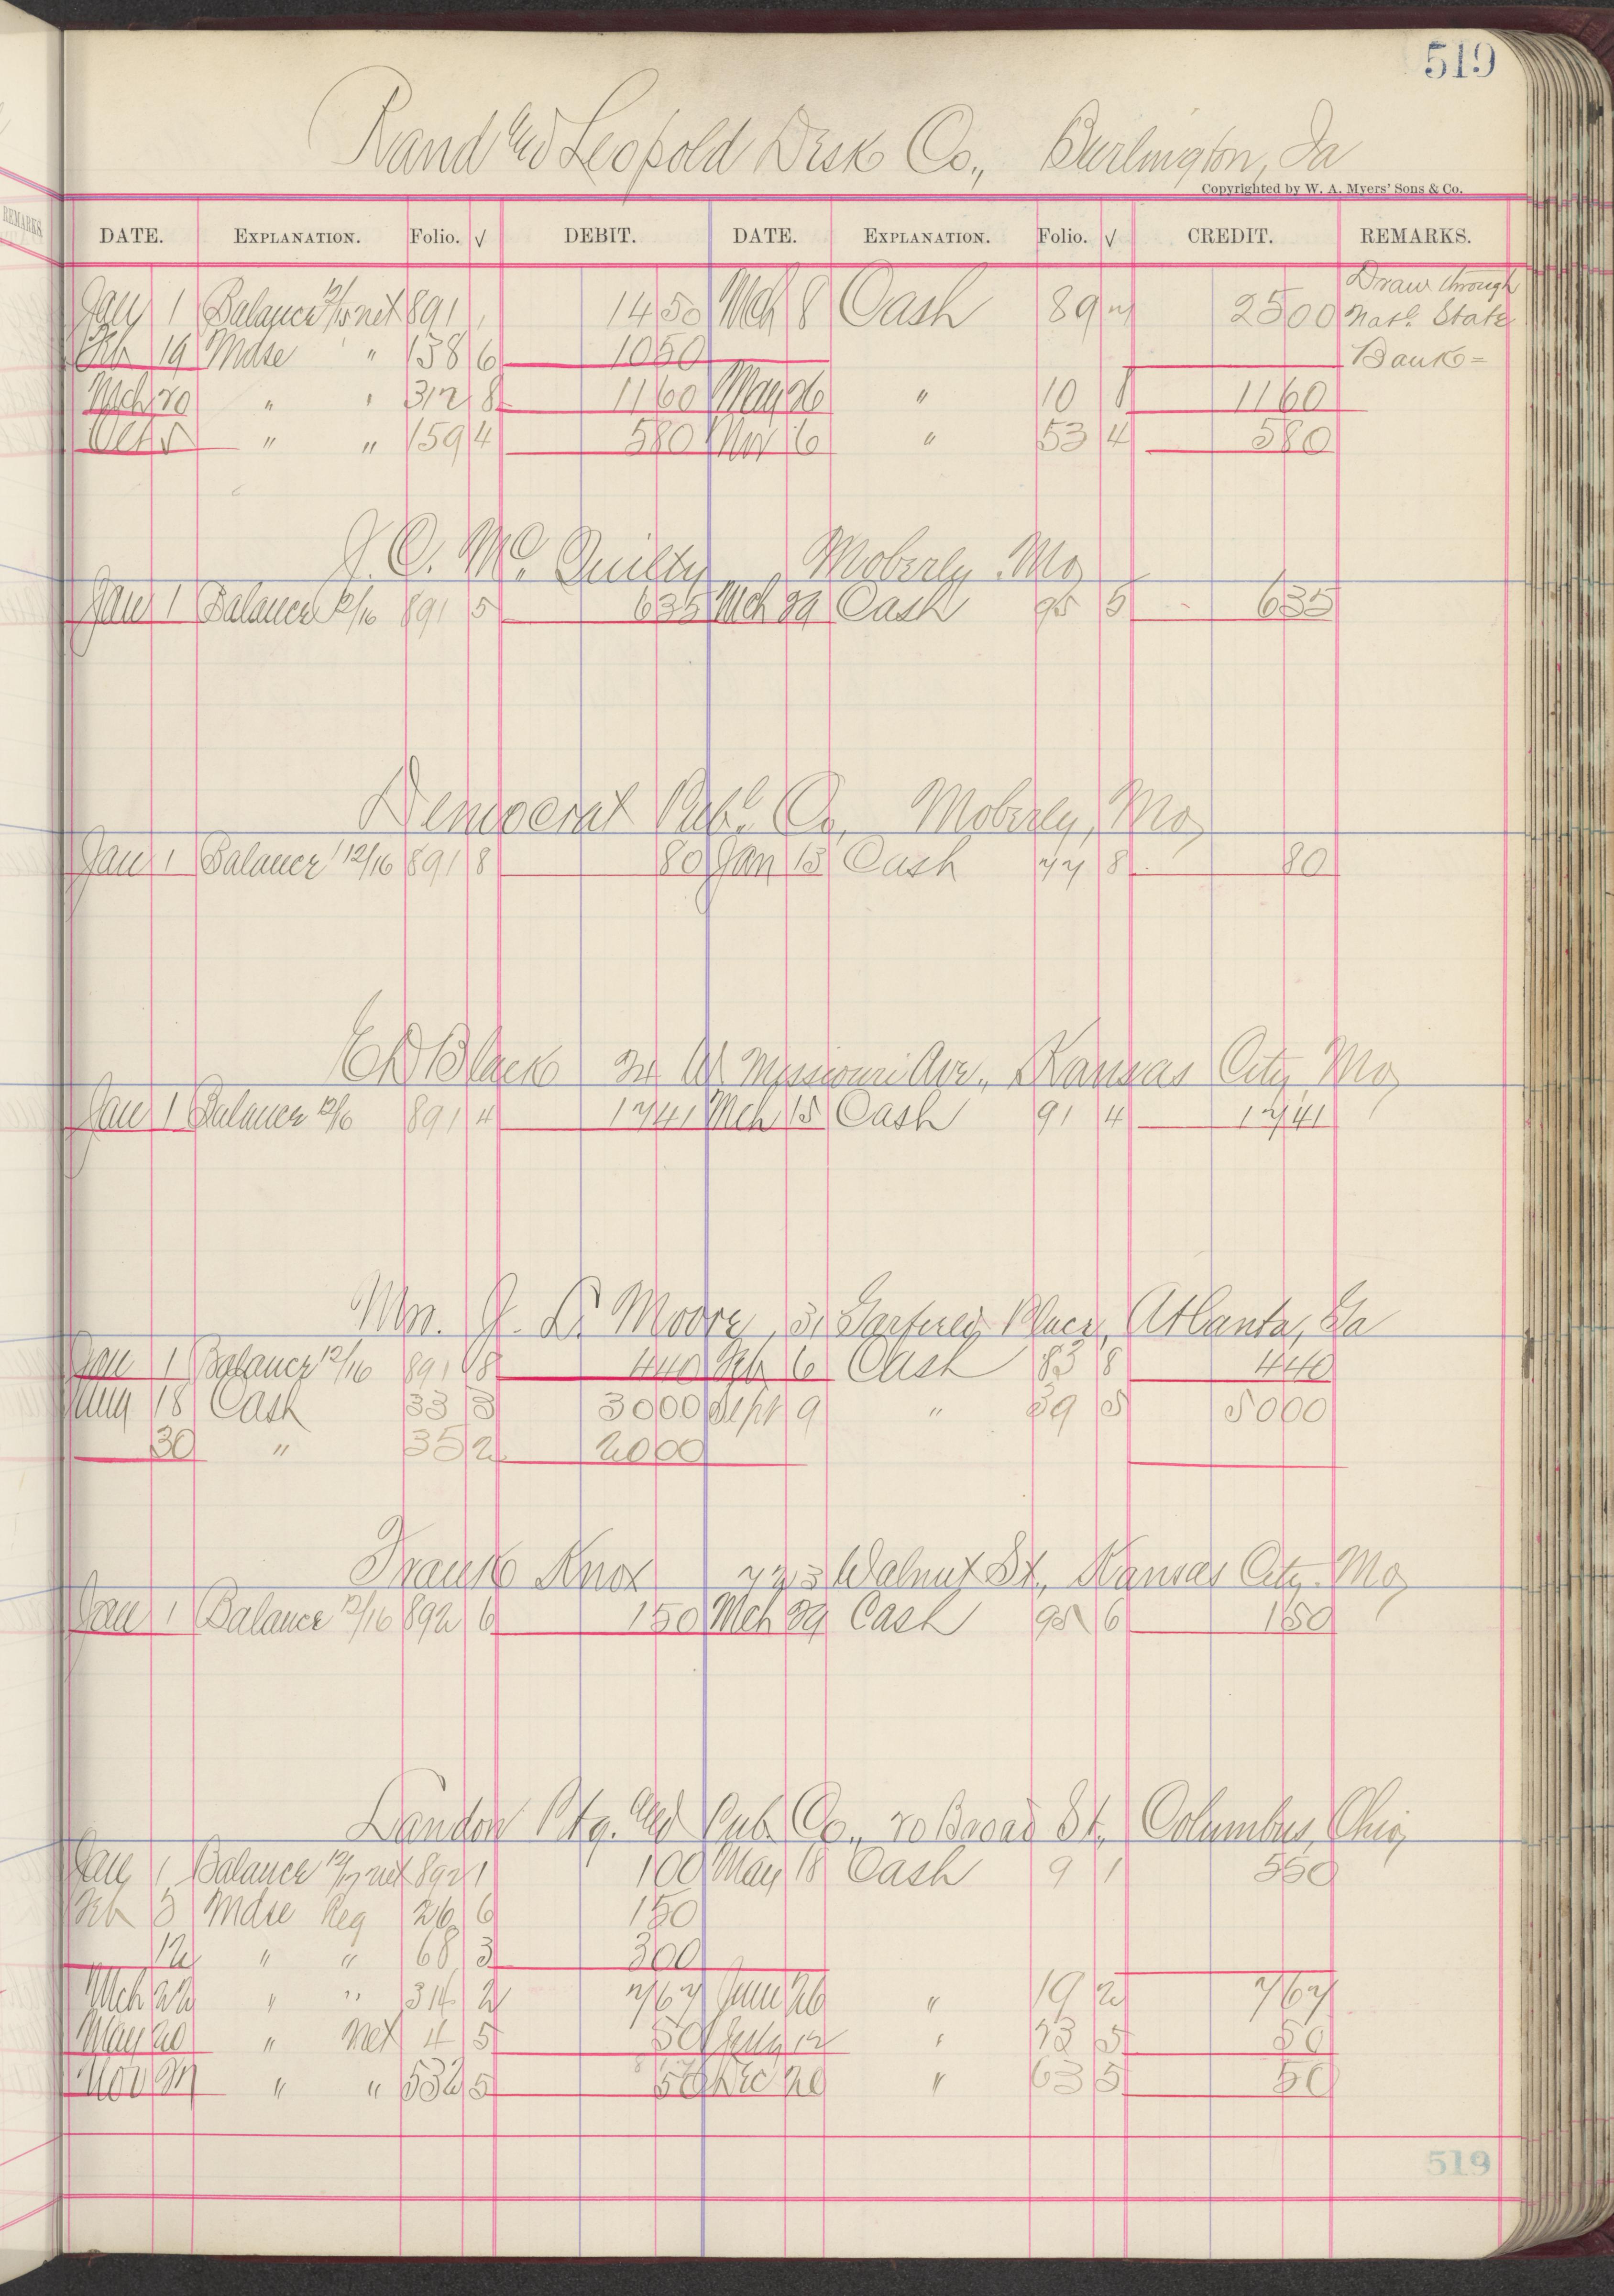 519
Rand and Leopold Desk Co., Burlington, Ia
Copyrighted by W. A. Myers' Sons & Co.
DATE. EXPLANATION. Folio. √ DEBIT. DATE. EXPLANATION. Folio. √ CREDIT. REMARKS.
Draw through
Jany 1 Balance net 891 1450 Mch 8 Cash 89 2500 Natl. State
Feb 19 Mdse " 158 6 1050 Banks-
Mch 20 " " 312 8 1160 May 26 " 10 8 1160
" " 159 4 580 Nov 6 " 53 4 580
J. C. Mc Quilty Moberly Mo
Jan 1 Balance 12/16 891 5 635 Mch 29 Cash 95 5 635
Democrat Pub. Co. Moberly, Mo
Jan 1 Balance 12/16 891 8 80 Jan 15 Cash 77 8 80
Black W Missouri Ave., Kansas City Mo
Jan 1 Balance 891 4 1741 Mch 15 Cash 91 4 1741
Moore, Place, Atlanta, Ga
Jan 1 Balance 12/16 891 8 440 Feb 6 Cash 83 8 440
Aug 18 Cash 33 3 3000 Sept 9 " 39 5 5000
30 " 35 2 2000
Frank Knox Walnut St., Kansas City Mo
Jan 1 Balance 12/16 892 6 150 Mch 29 Cash 95 6 150
Landon Ptg. and Pub. Co., Broad St. Columbus, Ohio
Jan 1 Balance net 892 1 100 May 18 Cash 9 1 550
Feb 3 Mdse Reg 26 6 150
12 " " 68 3 300
Mch 22 " " 314 2 767 June 26 " 19 2 767
May 20 " Net 4 5 50 July 12 " 23 5 50
Nov " " 532 5 50 Dec 20 " 63 5 50
519